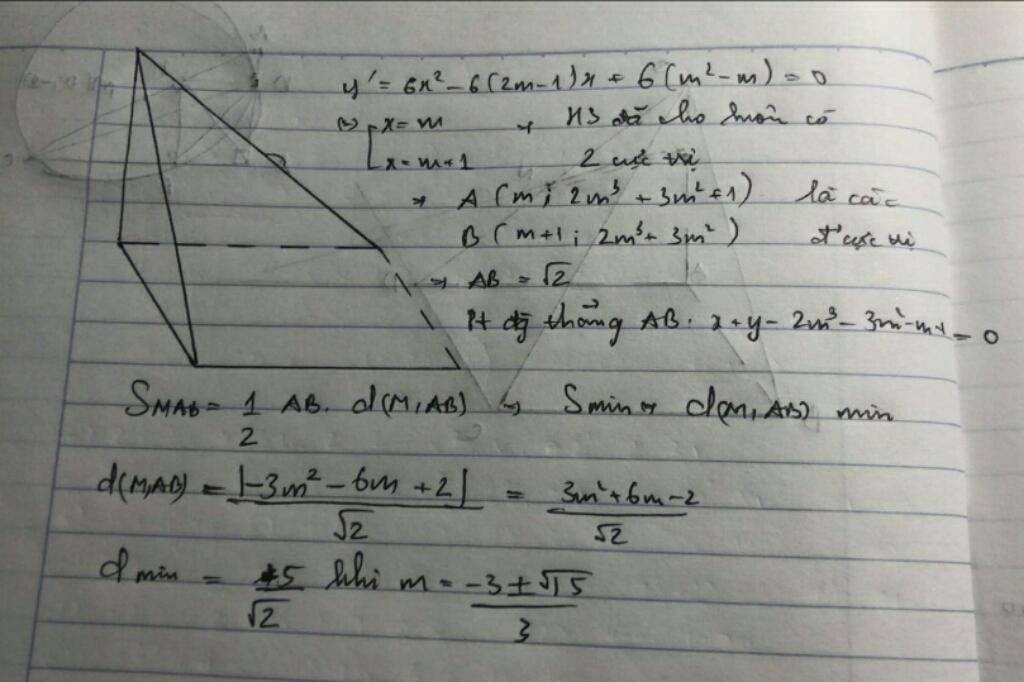 y' = 6x² - 6(2m-1)x + 6(m²-m) = 0
⇔ [ x = m → HS đã cho luôn có
x = m+1 2 cực trị
→ A (m; 2m³ + 3m² + 1) là các
B (m+1; 2m³ + 3m²) đ' cực trị
→ AB = √2
Pt đg thẳng AB. x + y - 2m³ - 3m² - m - 1 = 0
S_MAB = 1/2 AB. d(M, AB) → S min ⇔ d(M, AB) min
d(M,AB) = |-3m² - 6m + 2| / √2 = 3m² + 6m - 2 / √2
d min = 5/√2 khi m = -3 ± √15 / 3